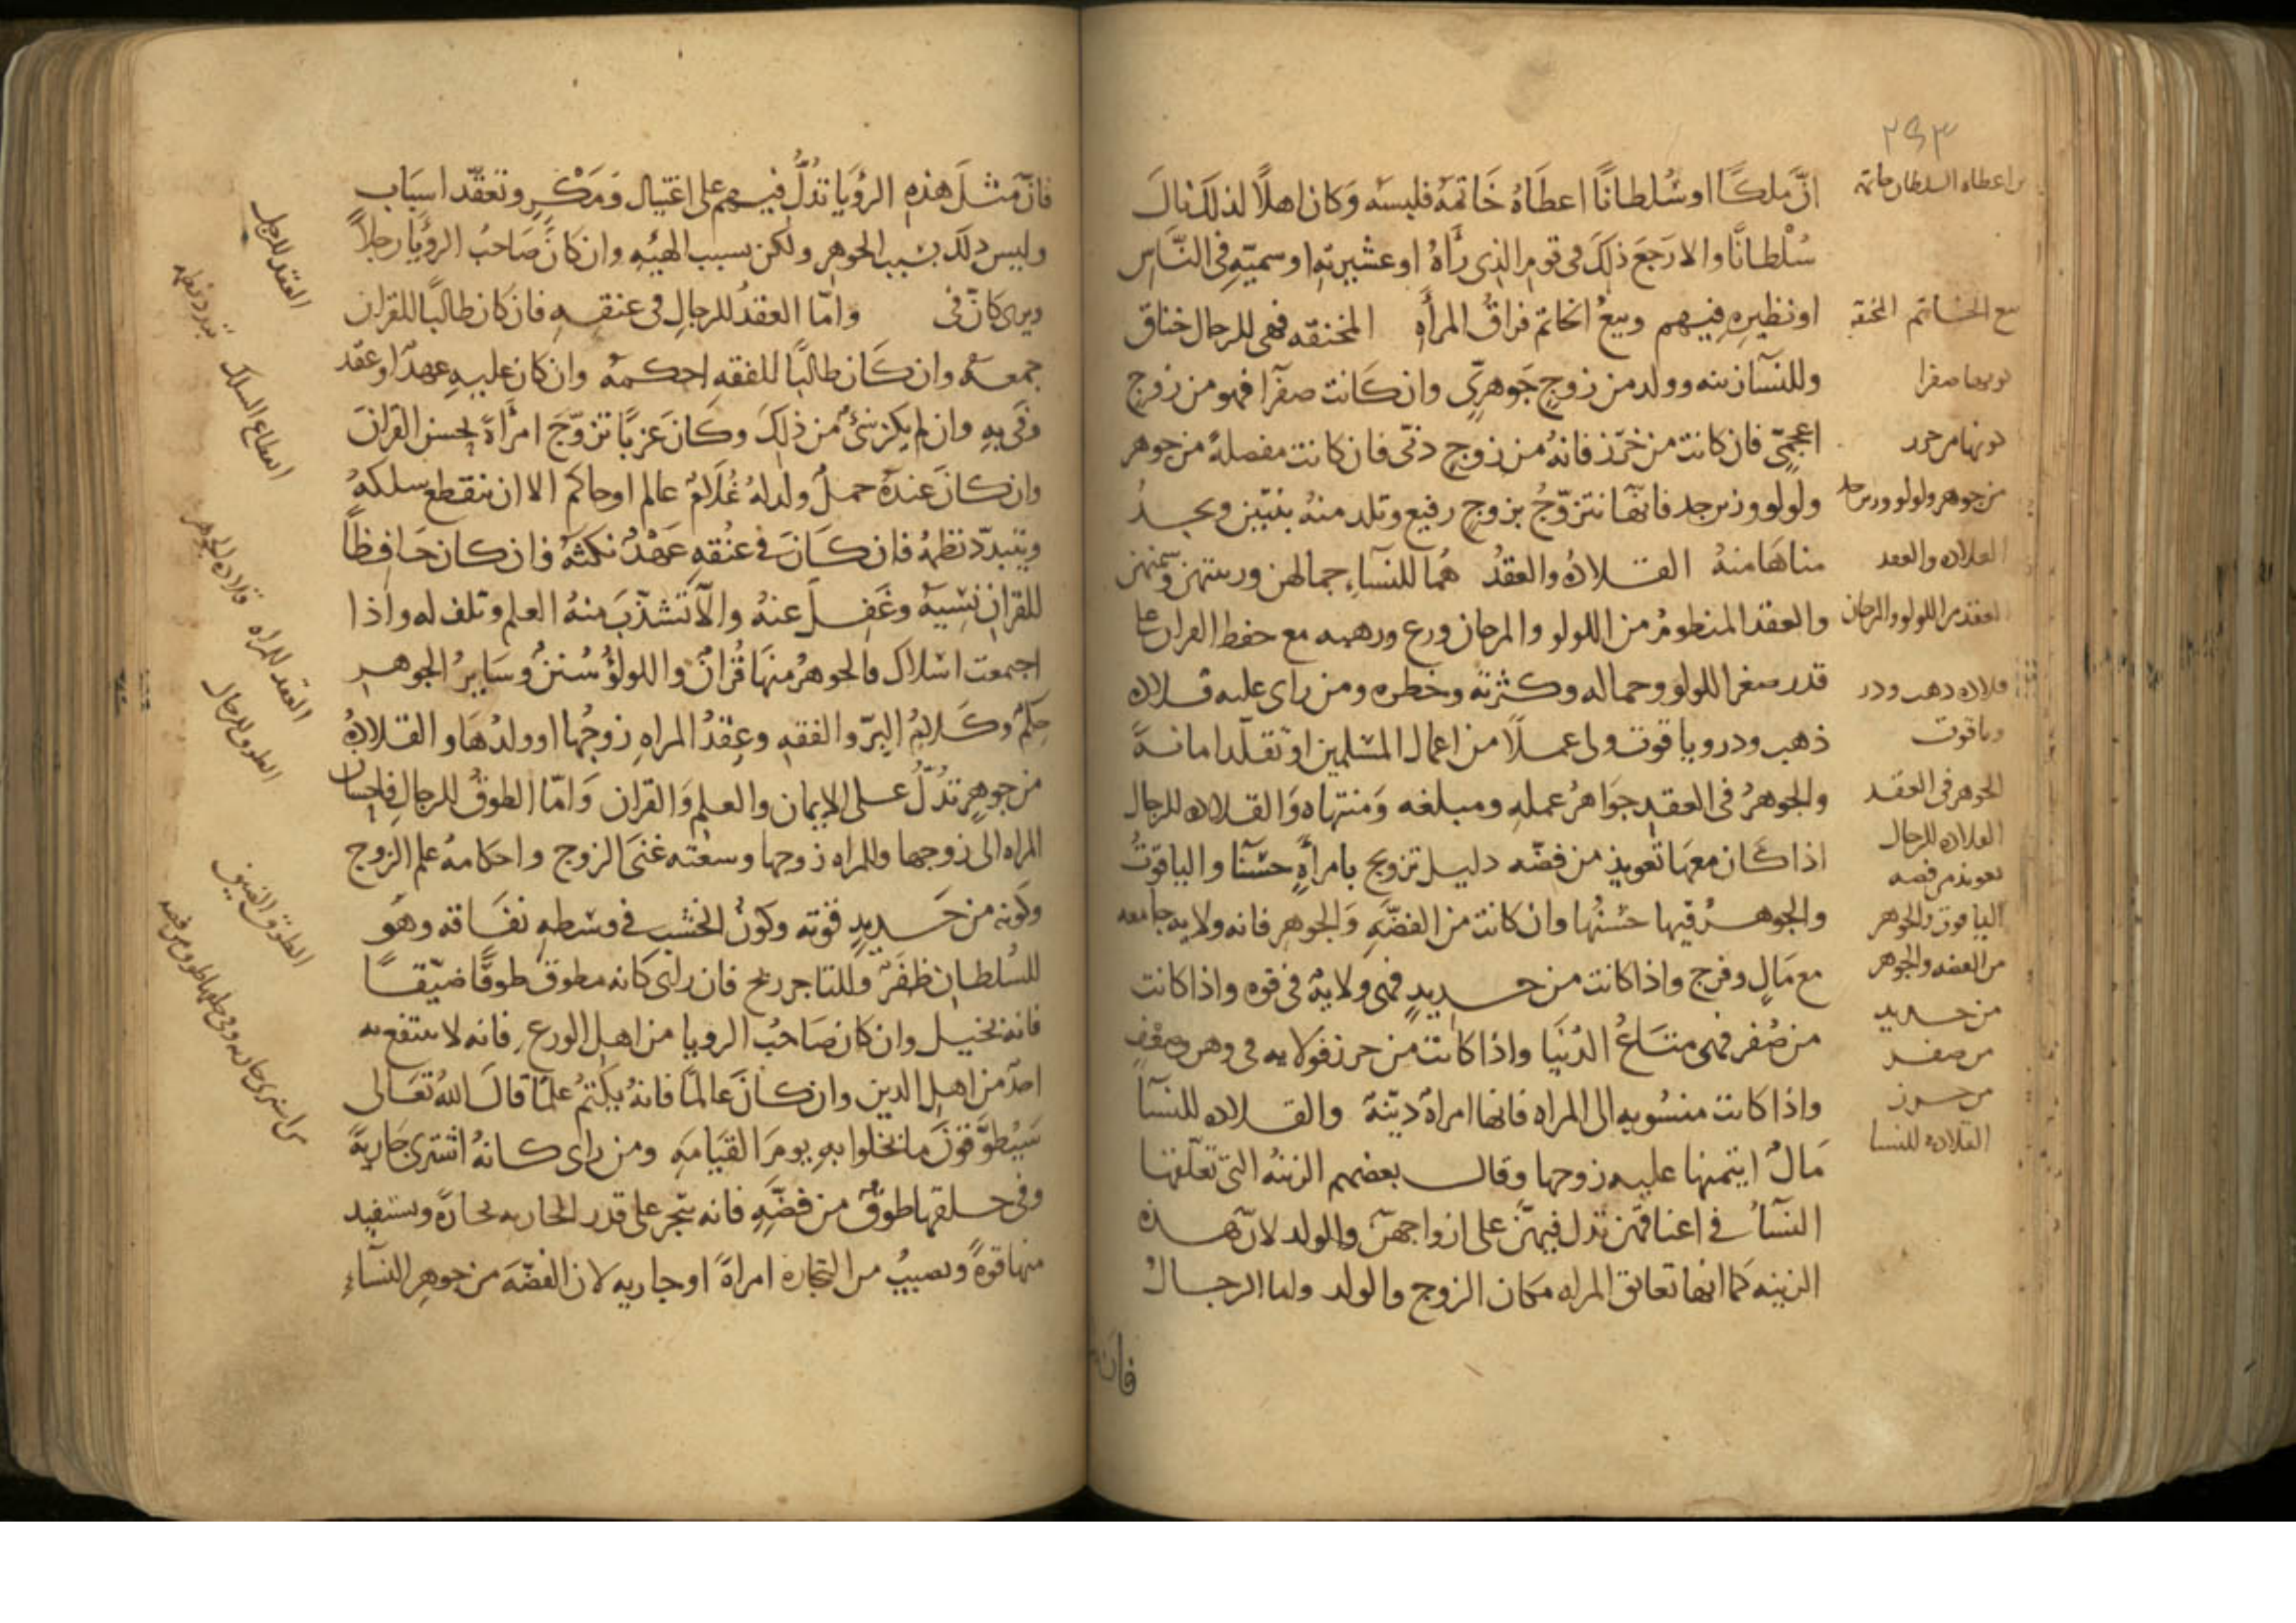 ٢٤٣
انّ ملكًا او سُلطانًا اعطَاهُ خَاتمَهُ فلبسَه وَكان اهلًا لذلكَ نالَ
سُلْطانًا والا رَجَعَ ذلكَ فى قومِ الذى رَأهُ او عشيرتهِ او سميّهِ فى النّاسِ
او نظيرِهِ فيهم وبيعُ الخاتم فراقُ المرأهِ المخنقه فهى للرجال خناق
وللنسآ زينه وولد من زوجٍ جَوهرىٍّ وان كَانت صفرًا فهو من زوج
اعجمىّ فان كانت من خرَز فانهُ من زوجٍ دنىّ فان كانت مفصلهً من جوهر
ولولو وزبرجد فانّها تتزوّجُ بزوجٍ رفيع وتلد منهُ بنتين وتجدُ
مناهَا منهُ القلادهُ والعقدُ هُما للنسَآءِ جمالهن وزينتهن
والعقد المنظومُ من اللولو والمرجان ورع ورهبه مع حفظ القران على
قدر صغر اللولو وجماله وكثرته وخطره ومن راى عليه قلاده
ذهب ودر وياقوت ولى عملًا من اعمال المسلمين او تقلّد امانهً
والجوهرُ فى العقد جوَاهرُ عملهِ ومبلغه وَمنتهاه وَالقلاده للرجال
اذا كان معهَا تعويذ من فضّه دليل تزويج بامرأهٍ حسْنآ والياقوتُ
والجوهرُ فيها حسْنُها وان كانت من الفضّهِ وَالجوهرِ فانه ولايه جامعه
مع مَالٍ وفرج واذا كانت من حديدٍ فهى ولايهٌ فى قوه واذا كانت
من صُفر فهى متَاعُ الدُنيَا واذا كانت من خرز فولايه فى وهن وضعف
واذا كانت منسُوبه الى المراه فانها امراهٌ ديّنهٌ والقلاده للنسَآ
مَالٌ ايتمنها عليه زوجها وقال بعضهم الزينهُ التى تعلّقها
النسَآُ فى اعناقهن تدل فيهنّ على ازواجهنّ والولد لانّ هذه
الزينه كما انها تعانق المراه مكان الزوج والولد واما الرجالُ
فانّ
من اعطاه السلطان خاتمه
بيع الخاتم المخنقه
كونها صفرا
كونها من خرز
من جوهر ولولو وزبرجد
القلاده والعقد
العقد من اللولو والمرجان
قلاده ذهب ودر
وياقوت
الجوهر فى العقد
القلاده للرجال
تعويذ من فضه
الياقوت والجوهر
من الفضه والجوهر
من حديد
من صفر
من خرز
القلاده للنسا
فانّ مثلَ هذهِ الرؤيَا تدُلُّ فيهم على اغتيالٍ وَمَكْرٍ وتعقّد اسبَاب
وليس ذلك بسَبب الجوهرِ ولكن بسبب الهيئهِ وان كانَ صَاحبُ الرؤيَا رجلًا
ويرى كانّ فى وامّا العقدُ للرجالِ فى عنقهِ فان كان طالبًا للقران
جمعهُ وان كَان طالبًا للفقهِ احكمهُ وان كان عليهِ عهدٌ او عقد
وَفَى بهِ وان لم يكن شىءٌ من ذلِكَ وكَانَ عَزبًا تزوّجَ امرأهً تحسن القرانَ
وان كانَ عندهُ حملٌ ولد لهُ غُلَامٌ عالم او حاكم الا ان ينقطع سلكهُ
ويتبدّد نظمهُ فان كَانَ فى عنقهِ عَهْدٌ نكثهُ وان كان حَافظًا
للقرانِ نَسِيَهُ وغَفِلَ عنهُ والّا تشذّبَ منهُ العلم وتلف له واذا
اجتمعت اسْلاك فالجوهرُ منهَا قُرانٌ واللولؤُ سُننٌ وسَايرُ الجوهرِ
حِكمٌ وكَلامُ البِرّ والفقهِ وعِقدُ المراهِ زوجُها او ولدُهَا والقلادهُ
من جوهرٍ تدُلُّ على الايمان والعلمِ وَالقران وَامّا الطوقُ للرجالِ فاحسان
المراه الى زوجها وللمراه زوجها وسعته غنَى الزوج واحكامهُ علم الزوج
وكونه من حَديدٍ قوته وكونُ الخشبِ فى وسَطهِ نفَاقه وهَو
للسُلطانِ ظفرٌ وللتاجر ربح فان راى كانه مطوق طوقًا ضيّقًا
فانه بخيل وان كان صَاحبُ الرويا من اهل الورعِ فانه لا ينتفع به
احدٌ من اهل الدين وان كانَ عَالمًا فانهُ يكتمُ علمًا قالَ اللهُ تعَالى
سَيُطوَّقونَ ما بخلوا بهِ يومَ القيَامهِ ومن راى كانهُ اشترى جَاريهً
وفى حلقها طوقٌ من فضّهٍ فانه يتّجر على قدر الجاريه تجارَهً ويستفيد
منها قوهً ويصيبُ من التجاره امراهً او جاريه لان الفضّهَ من جوهرِ النسَآءِ
العقد للرجل
تبدد نظمه
انقطاع السلك
قلاده الجوهر
العقد للمراه
الطوق للرجال
الطوق الضيق
من اشترى جاريه وفى حلقها طوق من فضه